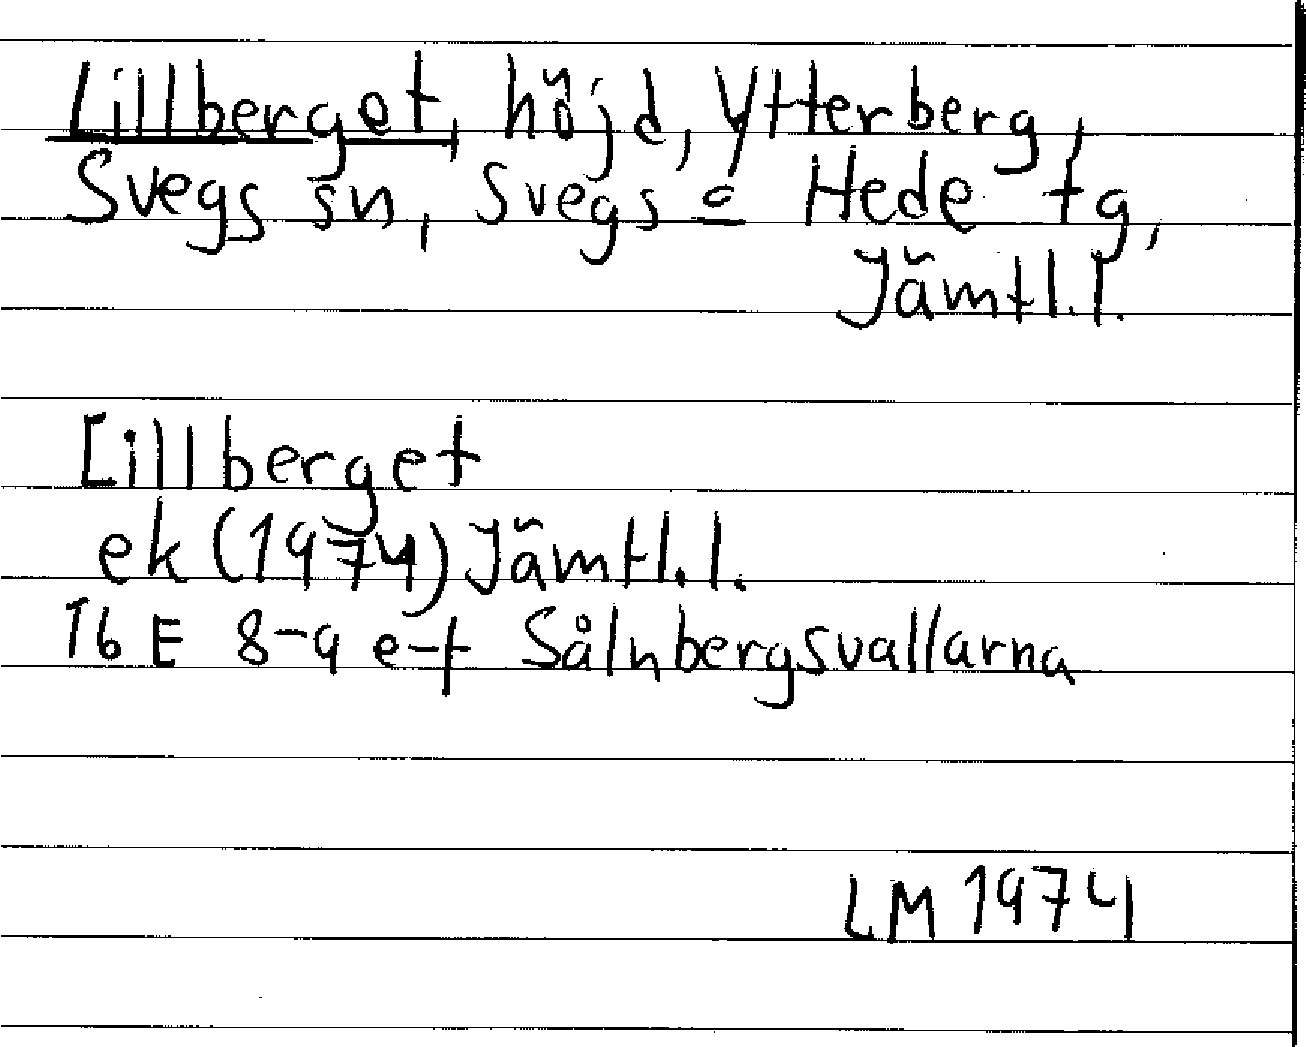 Lillberget, höjd, Ytterberg,
Svegs sn, Svegs = Hede tg,
Jämtl.l.
Lillberget
ek (1974) Jämtl.l.
16 E 8-9 e-f Sålnbergsvallarna
LM 1974